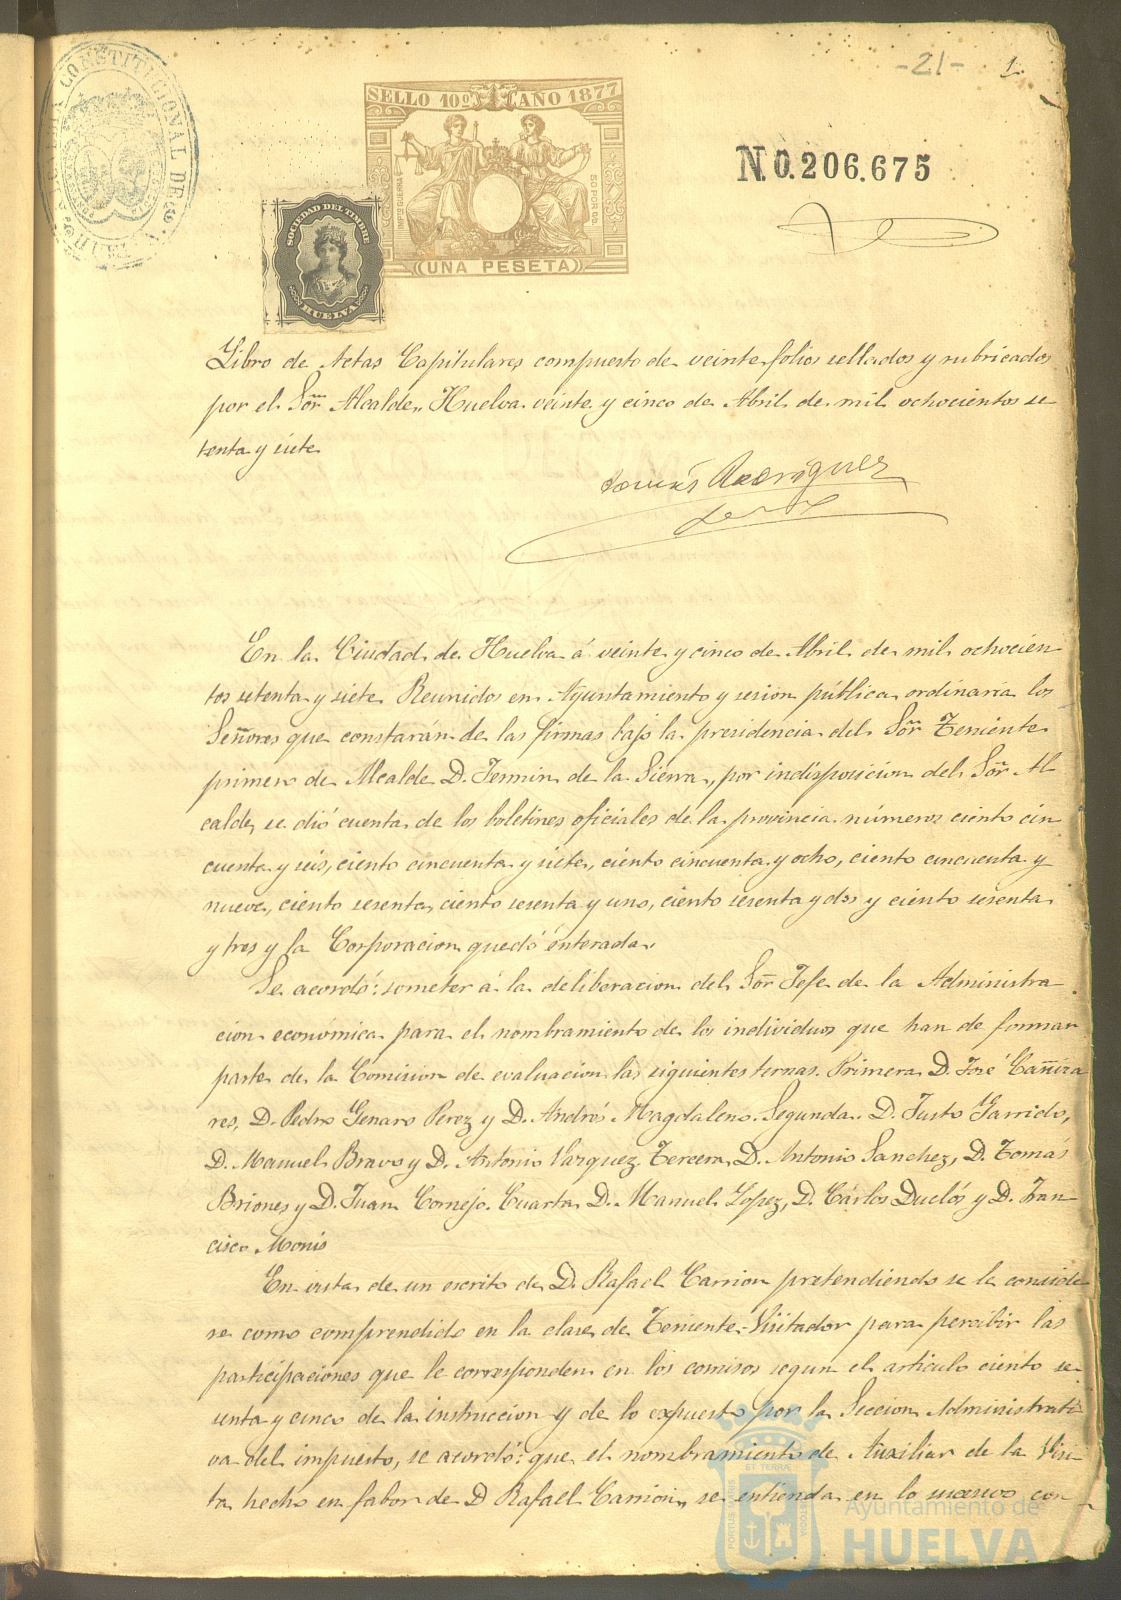 -21- 1
ALCALDIA CONSTITUCIONAL DE HUELVA
SELLO 10º AÑO 1877
IMPTO GUERRA
50 POR 00.
(UNA PESETA)
SOCIEDAD DEL TIMBRE
HUELVA
N.0.206.675
Libro de Actas Capitulares compuesto de veinte folios sellados y rubricados
por el Sor Alcalde. Huelva veinte y cinco de Abril de mil ochocientos se
tenta y siete
Tomás Rodriguez
En la Ciudad de Huelva á veinte y cinco de Abril de mil ochocien-
tos setenta y siete Reunidos en Ayuntamiento y sesion pública ordinaria los
Señores que constarán de las firmas bajo la presidencia del Sor Teniente
primero de Alcalde D. Fermin de la Sierra, por indisposicion del Sor Al-
calde, se dió cuenta de los boletines oficiales de la provincia números ciento cin
cuenta y seis, ciento cincuenta y siete, ciento cincuenta y ocho, ciento cincuenta y
nueve, ciento sesenta, ciento sesenta y uno, ciento sesenta y dos y ciento sesenta
y tres y la Corporacion quedó enterada.
Se acordó: someter á la deliberacion del Sor Jefe de la Administra-
cion económica para el nombramiento de los individuos que han de formar
parte de la Comision de evaluacion las siguientes ternas. Primera D. José Cañiza
res, D. Pedro Genaro Perez y D. Andrés Magdaleno. Segunda. D. Justo Garrido,
D. Manuel Bravo y D. Antonio Vazquez. Tercera, D. Antonio Sanchez, D. Tomás
Briones y D. Juan Cornejo. Cuarta, D. Manuel Lopez, D. Cárlos Duclós y D. Fran-
cisco Monis
En vista de un escrito de D. Rafael Carrion pretendiendo se le conside
re como comprendido en la clase de Teniente-Visitador para percibir las
participaciones que le corresponden en los comisos segun el articulo ciento se-
senta y cinco de la instruccion y de lo expuesto por la Seccion Administrati
va del impuesto, se acordó: que el nombramiento de Auxiliar de la Visi-
ta hecho en fabor de D Rafael Carrion, se entienda en lo sucesivo con-
PORTUS MARIS
ET TERRÆ
CUSTODIA
Ayuntamiento de
HUELVA